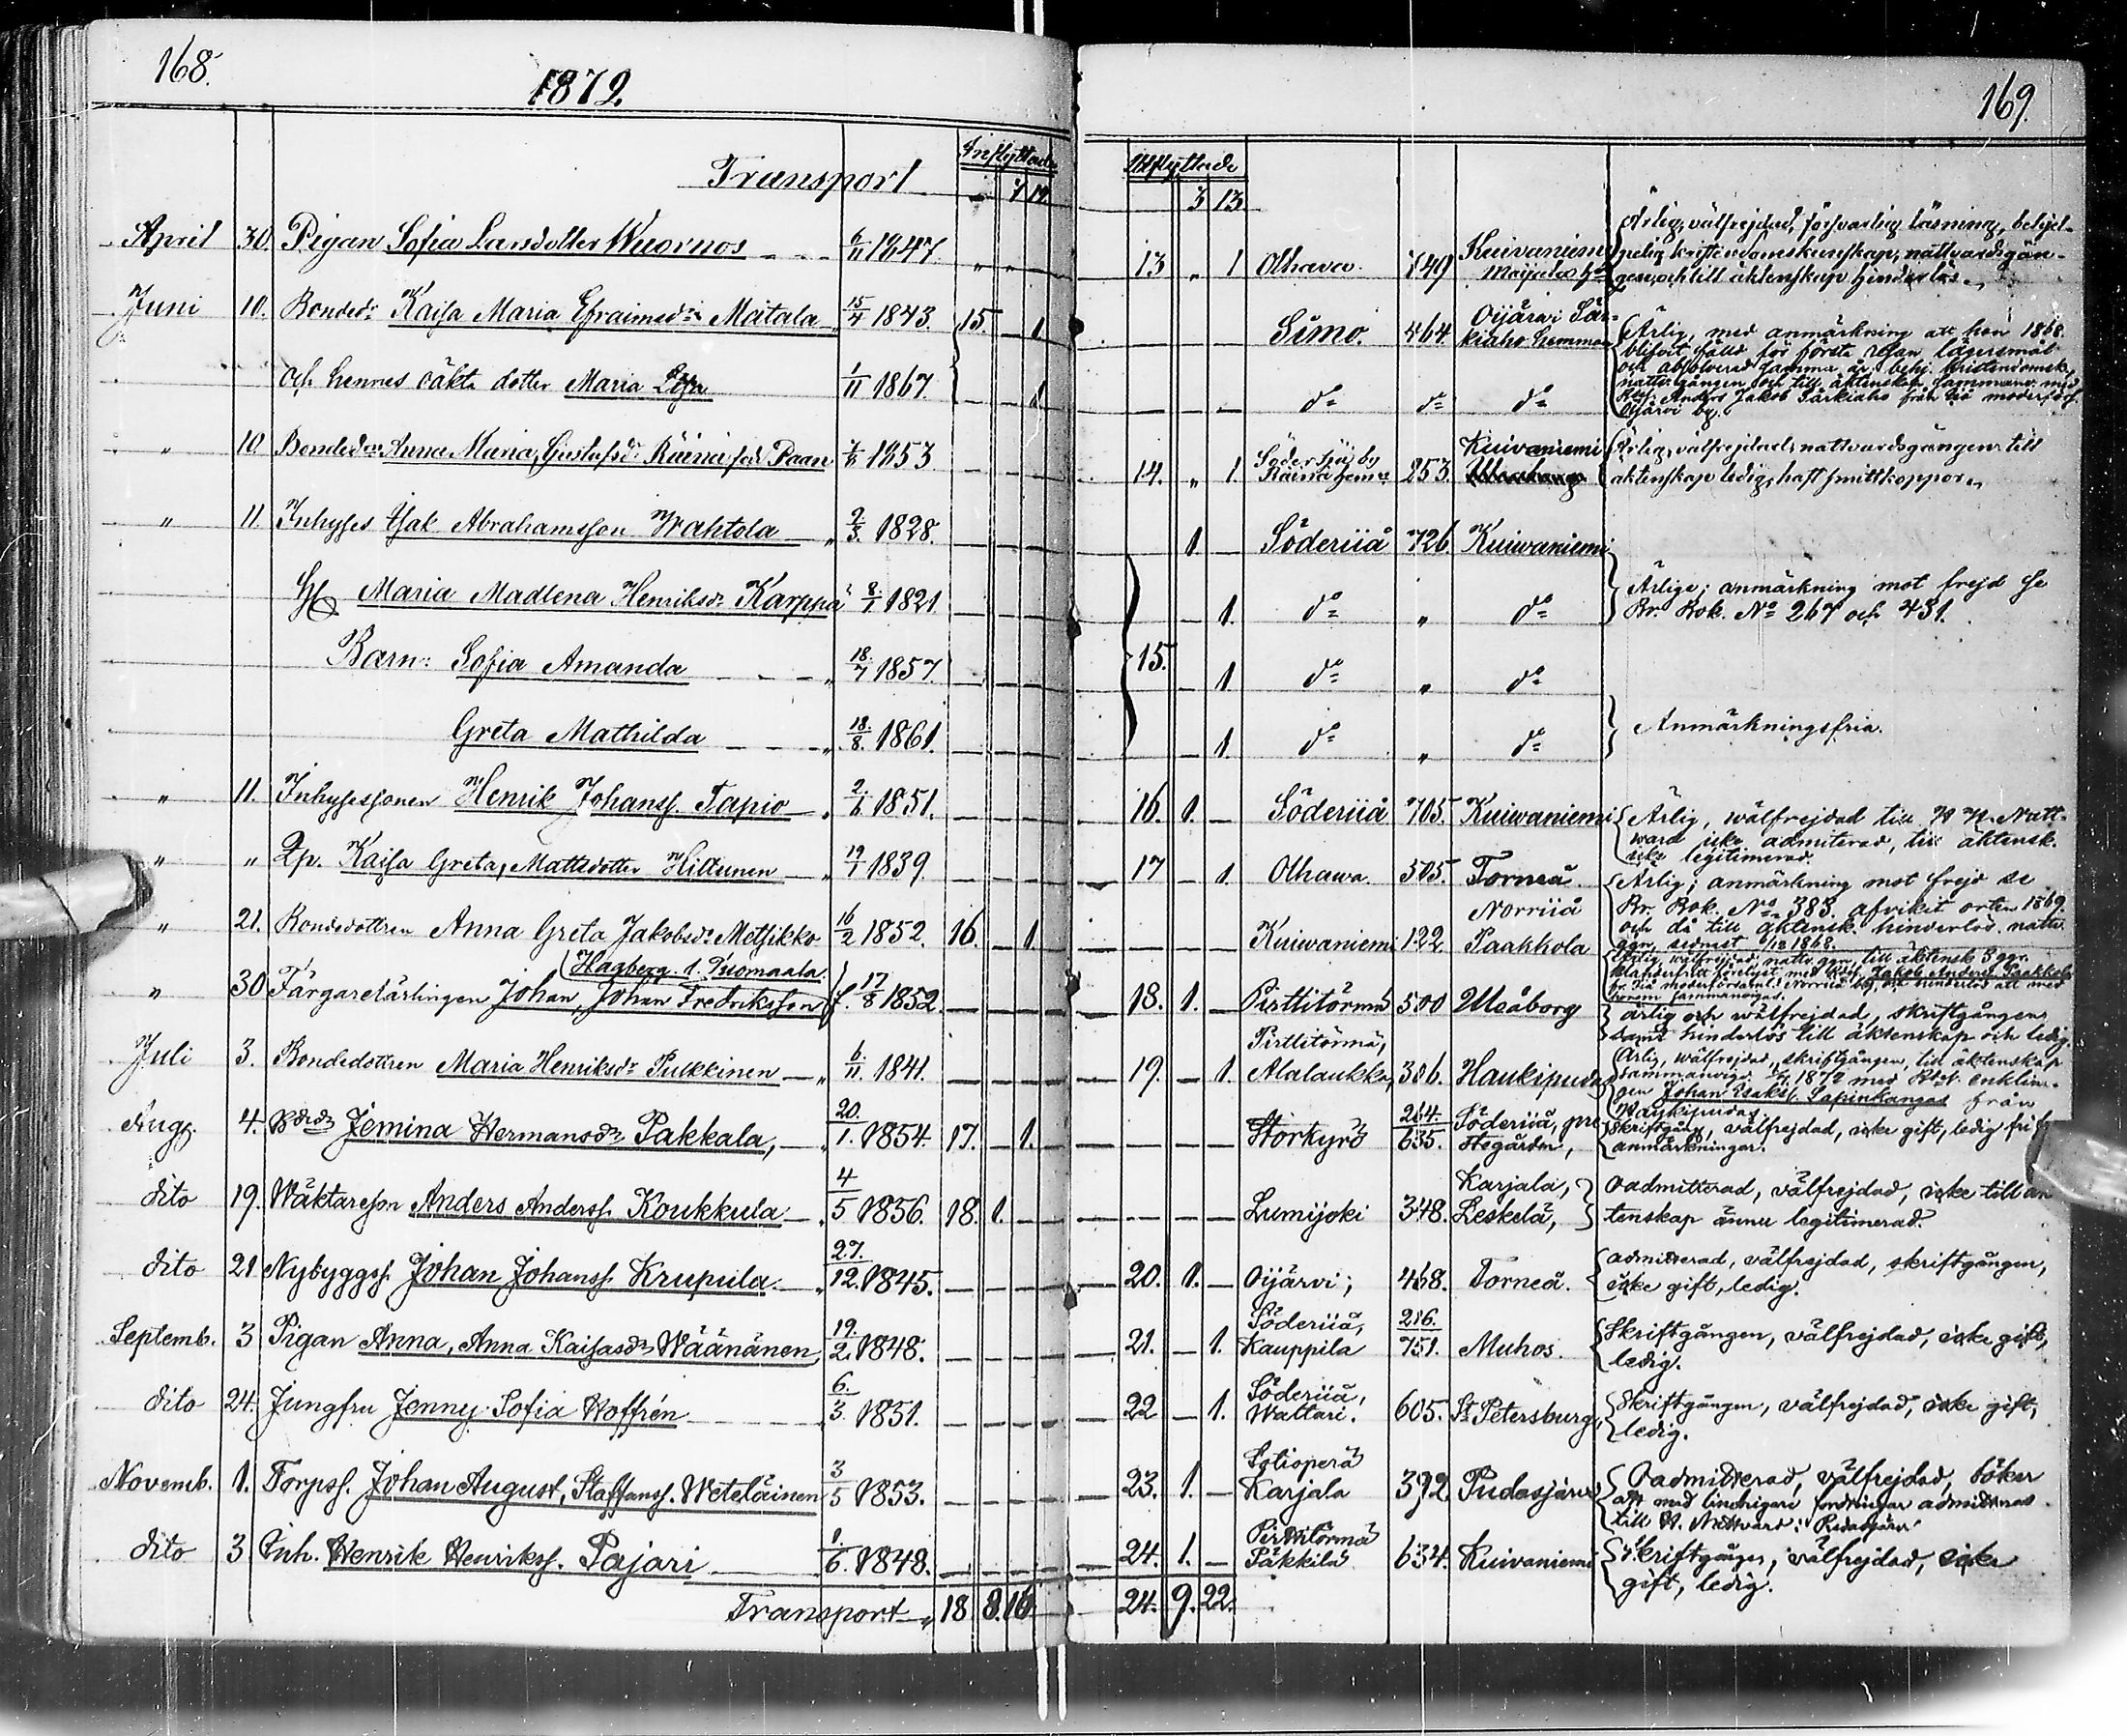 168.
1872.
Inflyttade
Transport " 7 12
April 30. Pigan Sofia Larsdotter Wuornos 6/11 1847. " "
Juni 10. Bonded: Kaisa Maria Efraimsd:r Mätala 15/4 1843. 15. 1
och hennes oäkta dotter Maria Lisa 1/11 1867. 1
" 10 Bondedr Anna Maria, Gustafsd:r Räinä 1853
" 11. Inhyses Isak Abrahamsson Wahtola " 2/3. 1828.
H. Maria Madlena Henriksdr Karppa 8/1 1821
Barn: Sofia Amanda " 18./7 1857
Greta Mathilda " 18./8. 1861.
" 11. Inhysessonen Henrik Johanss. Tapio " 2./6 1851.
" " Qp. Kaisa Greta, Mattsdotter Hiltunen " 19/1 1839.
" 21. Bondedottren Anna Greta Jakobsd:r Metsikko 16/2 1852. 16. 1.
Hagberg l. Tuomaala.
" 30 Färgarelärlingen Johan, Johan Fredriksson f. 17/8 1852.
Juli 3. Bondedottren Maria Henriksdr Pulkkinen " 6./11. 1841.
Aug. 4. Bdrdr Jemina Hermansdr Pakkala, 20./1. 1854. 17. 1.
dito 19. Wäktareson Anders Anderss. Koukkula 4/5 1856. 18. 1.
dito 21 Nybyggss. Johan Johanss. Krupula 27./12. 1845.
Septemb. 3 Pigan Anna, Anna Kaisasdr Wäänänen 19./2. 1848.
dito 24. Jungfru Jenny Sofia Hoffrén 6./3 1851.
Novemb. 1. Torpss. Johan August, Staffanss. Weteläinen 3/5 1853.
dito 3 Inh. Henrik Henrikss. Pajari 1/6. 1848.
Transport " 18 8. 16
169.
Utflyttade
3 13
13 " 1 Olhava. 749 Kuivaniemi Ärlig, välfrejdad, försvarlig läsning, behjel-
pelig kristendomskunskap, nattvardsgån-
gen, och till äktenskap hinderlös.
Simo. 464. Oijärvi Sär-
kiaho hemman Ärlig, med anmärkning att hon 1868.
blifvit fälld för första resan lägersmål
och absolverad samma år, behj. kristendomsk.
nattv. gången och till äktenskap sammanv. med
Anders Jakob Särkiaho från Iiå moderförs.
Oijärvi by.
do do do
14. " 1. Söder Iiå by
Räinä hem:n 253. Kuivaniemi Ärlig, välfrejdad, nattvardsgången till
äktenskap ledig, haft smittkoppor.
1 Söderiiå 726 Kuiwaniemi
1. do " do Ärlige; anmärkning mot frejd se
Br. Bok. No 267 och 431.
15. 1 do " do
1. do " do Anmärkningsfria.
16. 1. Söderiiå 705. Kuiwaniemi Ärlig, wälfrejdad till H. H. Natt-
ward icke admiterad, till äktensk.
icke legitimerad.
17 1. Olhawa. 505. Torneå. Ärlig; anmärkning mot frejd se
Br. Bok. No 383. afvikit orten 1869.
och då till äktensk. hinderlös. nattv.
ggn. sednast 1868.
Kuiwaniemi 122 Norriiå
Paakkola
18. 1. Pirttitörmä 500 Uleåborg ärlig och wälfrejdad, skriftgången
samt hinderlös till äktenskap och ledig.
19. 1. Pirttitörmä,
Alalaukka, 306. Haukipudas Ärlig, wälfrejdad, skriftgången, till äktenskap
sammanvigd 1872 med enklin-
gen Johan Isakss. Papinkangas från
Haukipudas.
Storkyrö 264./635. Söderiiå, pre-
stegården, skriftgång, välfrejdad, icke gift, ledig fri fr.
anmärkningar.
Lumijoki 348. Karjala,
Leskelä, Oadmitterad, välfrejdad, icke till äk
tenskap ännu legitimerad.
20. 1. Oijärvi; 468. Torneå. admitterad, välfrejdad, skriftgången,
icke gift, ledig.
21. 1. Söderiiå,
Kauppila 216./751. Muhos. Skriftgången, välfrejdad, icke gift,
ledig.
22 1. Söderiiå,
Wattari. 605. St Petersburg, Skriftgången, välfrejdad, icke gift,
ledig.
23. 1. Sotioperä
Karjala 392. Pudasjärvi Oadmitterad, välfrejdad, söker
att med lindrigare fordringar admitteras
till H. Nattvard i Pudasjärvi
24. 1. Pirttitörmä
Pakkila 634. Kuivaniemi Skriftgången, välfrejdad, icke
gift, ledig.
24. 9. 22.